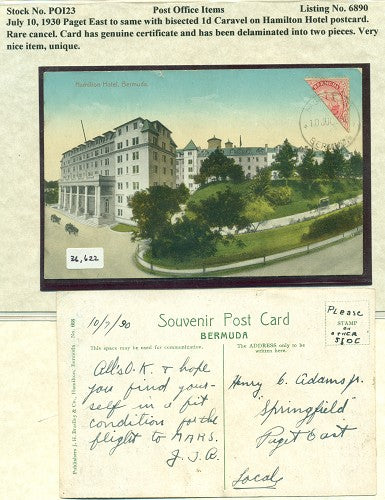 Stock No. POI23 Post Office Items Listing No. 6890
July 10, 1930 Paget East to same with bisected 1d Caravel on Hamilton Hotel postcard.
Rare cancel. Card has genuine certificate and has been delaminated into two pieces. Very
nice item, unique.
Hamilton Hotel, Bermuda.
BERMUDA
10 JUL
36,622
10/7/30
Souvenir Post Card
BERMUDA
Please
STAMP
ON
OTHER
SIDE
This space may be used for communication.
The ADDRESS only to be
written here.
All's O.K. & hope
you find your-
self in a fit
condition for the
flight to MARS.
J.J.B.
Henry C. Adams jr.
"Springfield"
Paget East
Local
No. 608
Publishers J. H. Bradley & Co., Hamilton, Bermuda.